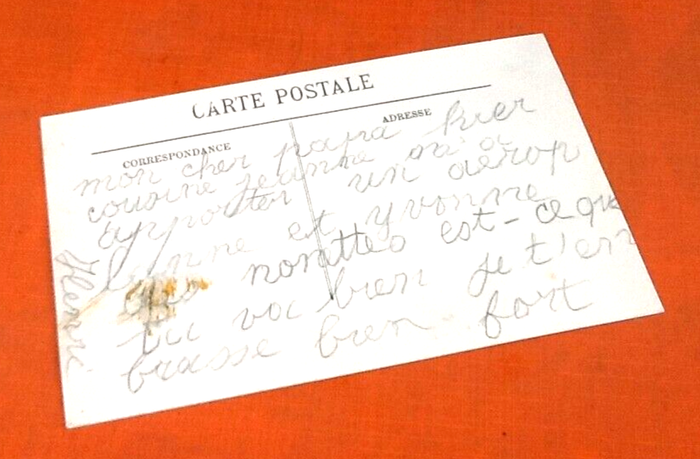 CARTE POSTALE
CORRESPONDANCE
ADRESSE
mon cher papa hier
cousine jeanne m'a
apporter un aérop
lanne et yvonne
des nonettes est-ce que
tu voc bien je t'en
brasse bien fort
Henri